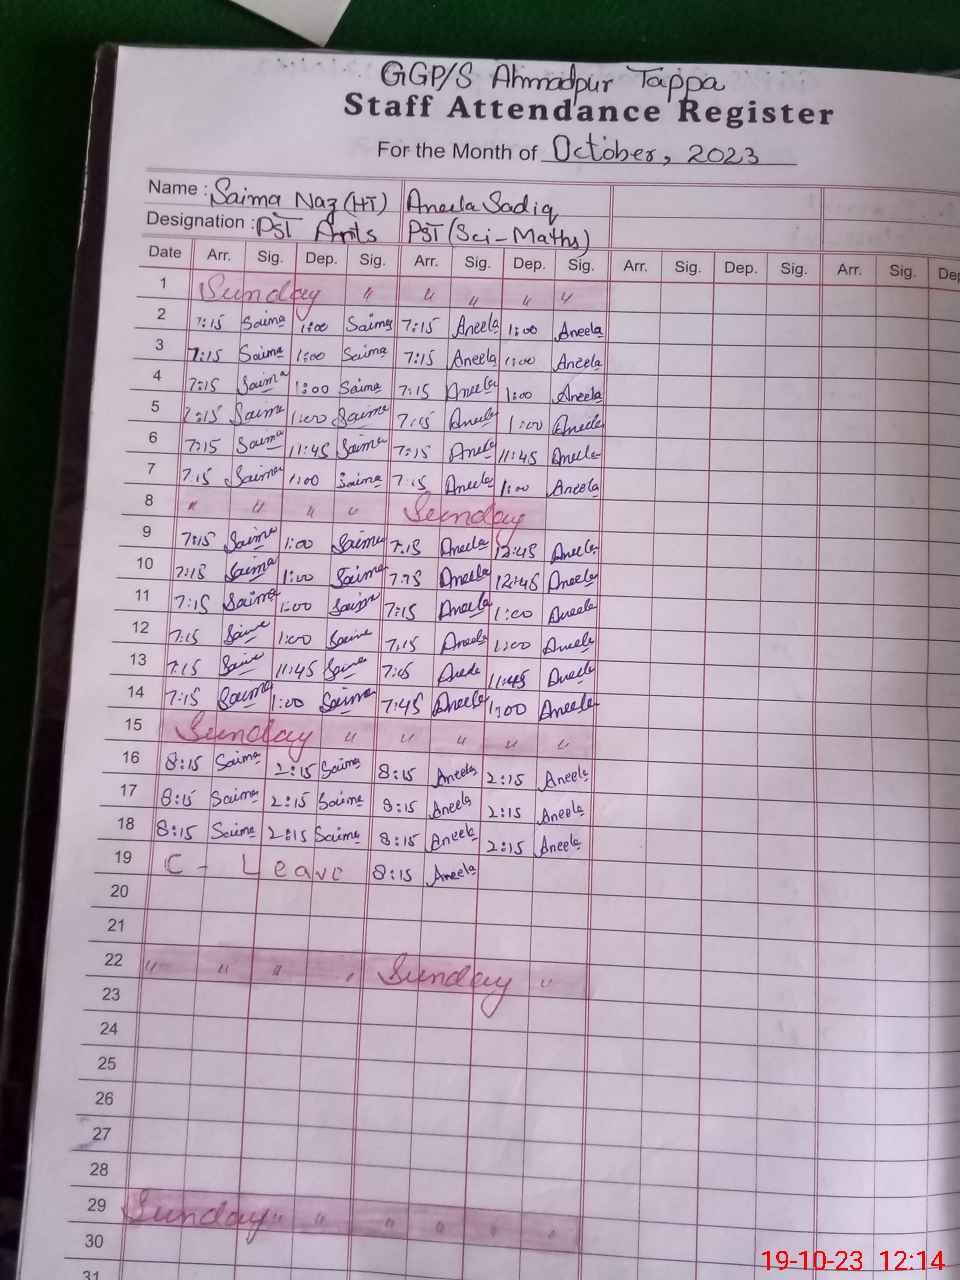 GGP/S Ahmadpur Tappa
Staff Attendance Register
For the Month of October, 2023
Name : Saima Naz (HT) Aneela Sadiq
Designation : PST Arts PST (Sci-Maths)
Date Arr. Sig. Dep. Sig. Arr. Sig. Dep. Sig. Arr. Sig. Dep. Sig. Arr. Sig. Dep
1 Sunday " " " " "
2 7:15 Saima 1:00 Saima 7:15 Aneela 1:00 Aneela
3 7:15 Saima 1:00 Saima 7:15 Aneela 1:00 Aneela
4 7:15 Saima 1:00 Saima 7:15 Aneela 1:00 Aneela
5 7:15 Saima 1:00 Saima 7:15 Aneela 1:00 Aneela
6 7:15 Saima 11:45 Saima 7:15 Aneela 11:45 Aneela
7 7:15 Saima 1:00 Saima 7:15 Aneela 1:00 Aneela
8 " " " " Sunday
9 7:15 Saima 1:00 Saima 7:15 Aneela 12:45 Aneela
10 7:15 Saima 1:00 Saima 7:15 Aneela 12:45 Aneela
11 7:15 Saima 1:00 Saima 7:15 Aneela 1:00 Aneela
12 7:15 Saima 1:00 Saima 7:15 Aneela 1:00 Aneela
13 7:15 Saima 11:45 Saima 7:15 Aneela 11:45 Aneela
14 7:15 Saima 1:00 Saima 7:45 Aneela 1:00 Aneela
15 Sunday " " " " "
16 8:15 Saima 2:15 Saima 8:15 Aneela 2:15 Aneela
17 8:15 Saima 2:15 Saima 8:15 Aneela 2:15 Aneela
18 8:15 Saima 2:15 Saima 8:15 Aneela 2:15 Aneela
19 C - Leave 8:15 Aneela
20
21
22 " " " " Sunday "
23
24
25
26
27
28
29 Sunday " " " " " "
30
31
19-10-23 12:14